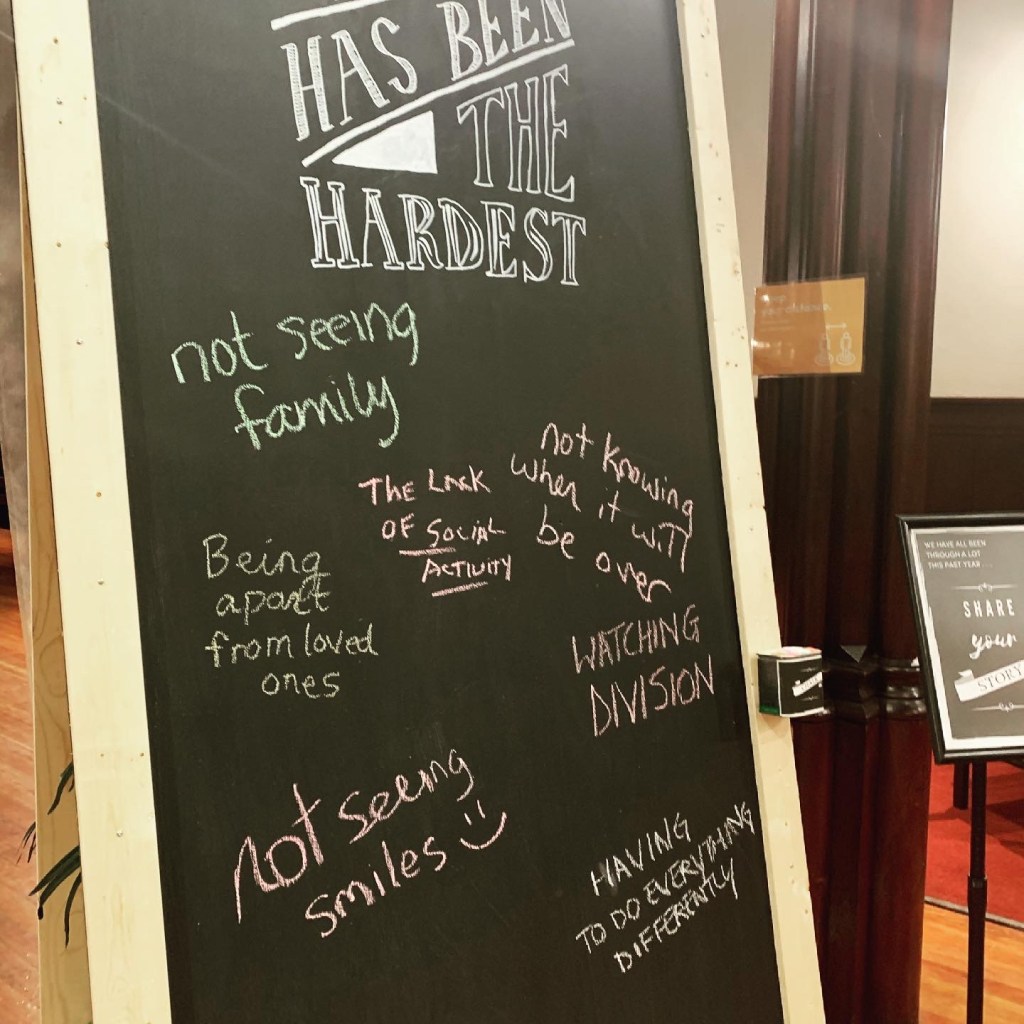 HAS BEEN
THE
HARDEST
not seeing
family
THE LACK
OF SOCIAL
ACTIVITY
not knowing
when it will
be over
Being
apart
from loved
ones
WATCHING
DIVISION
not seeing
smiles :)
HAVING
TO DO EVERYTHING
DIFFERENTLY
WE HAVE ALL BEEN
THROUGH A LOT
THIS PAST YEAR...
SHARE
your
STORY